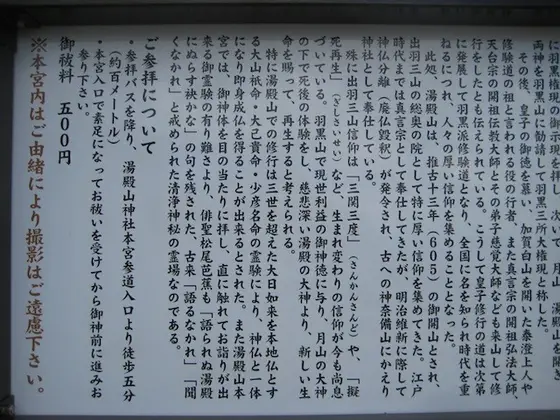 羽黒大権現の御現
両神を羽黒山に勧請して羽黒三所大権現と称した。
その後、皇子の御徳を慕い、加賀白山を開いた泰澄上人や
修験道の祖と言われる役の行者、また真言宗の開祖弘法大師、
天台宗の開祖伝教大師とその弟子慈覚大師なども来山して修
行をしたとも伝えられている。こうして皇子修行の道は次第
に発展して羽黒派修験道となり、全国に名を知られ時代を重
ねるにつれ、人々の厚い信仰を集めることとなった。
此処、湯殿山は、推古十三年(605)の御開山とされ、
出羽三山の総奥の院として特に厚い信仰を集めてきた。江戸
時代までは真言宗として奉仕してきたが、明治維新に際して
神仏分離(廃仏毀釈)が発令され、古への神奈備山にかえり
神社として奉仕している。
殊に出羽三山信仰は「三関三度」(さんかんさんど)や、「擬
死再生」(ぎしさいせい)など、生まれ変わりの信仰が今も尚息
づいている。羽黒山で現世利益の御神徳に与り、月山の大神
の下で死後の体験をし、慈悲深い湯殿の大神より、新しい生
命を賜って、再生すると考えられる。
特に湯殿山での修行は三世を超えた大日如来を本地仏とす
る大山祇命・大己貴命・少彦名命の霊験により、神仏と一体
になり即身成仏を得ることが出来るとされた。また湯殿山本
宮では、御神体を目の当たりに拝し、直に触れてお詣りが出
来る御霊験の有り難さより、俳聖松尾芭蕉も「語られぬ湯殿
にぬらす袂かな」の句を残された、古来「語るなかれ」「聞
くなかれ」と戒められた清浄神秘の霊場なのである。
ご参拝について
・参拝バスを降り、湯殿山神社本宮参道入口より徒歩五分
(約百メートル)
・本宮入口で素足になってお祓いを受けてから御神前に進みお
参り下さい。
御祓料 五00円
※本宮内はご由緒により撮影はご遠慮下さい。